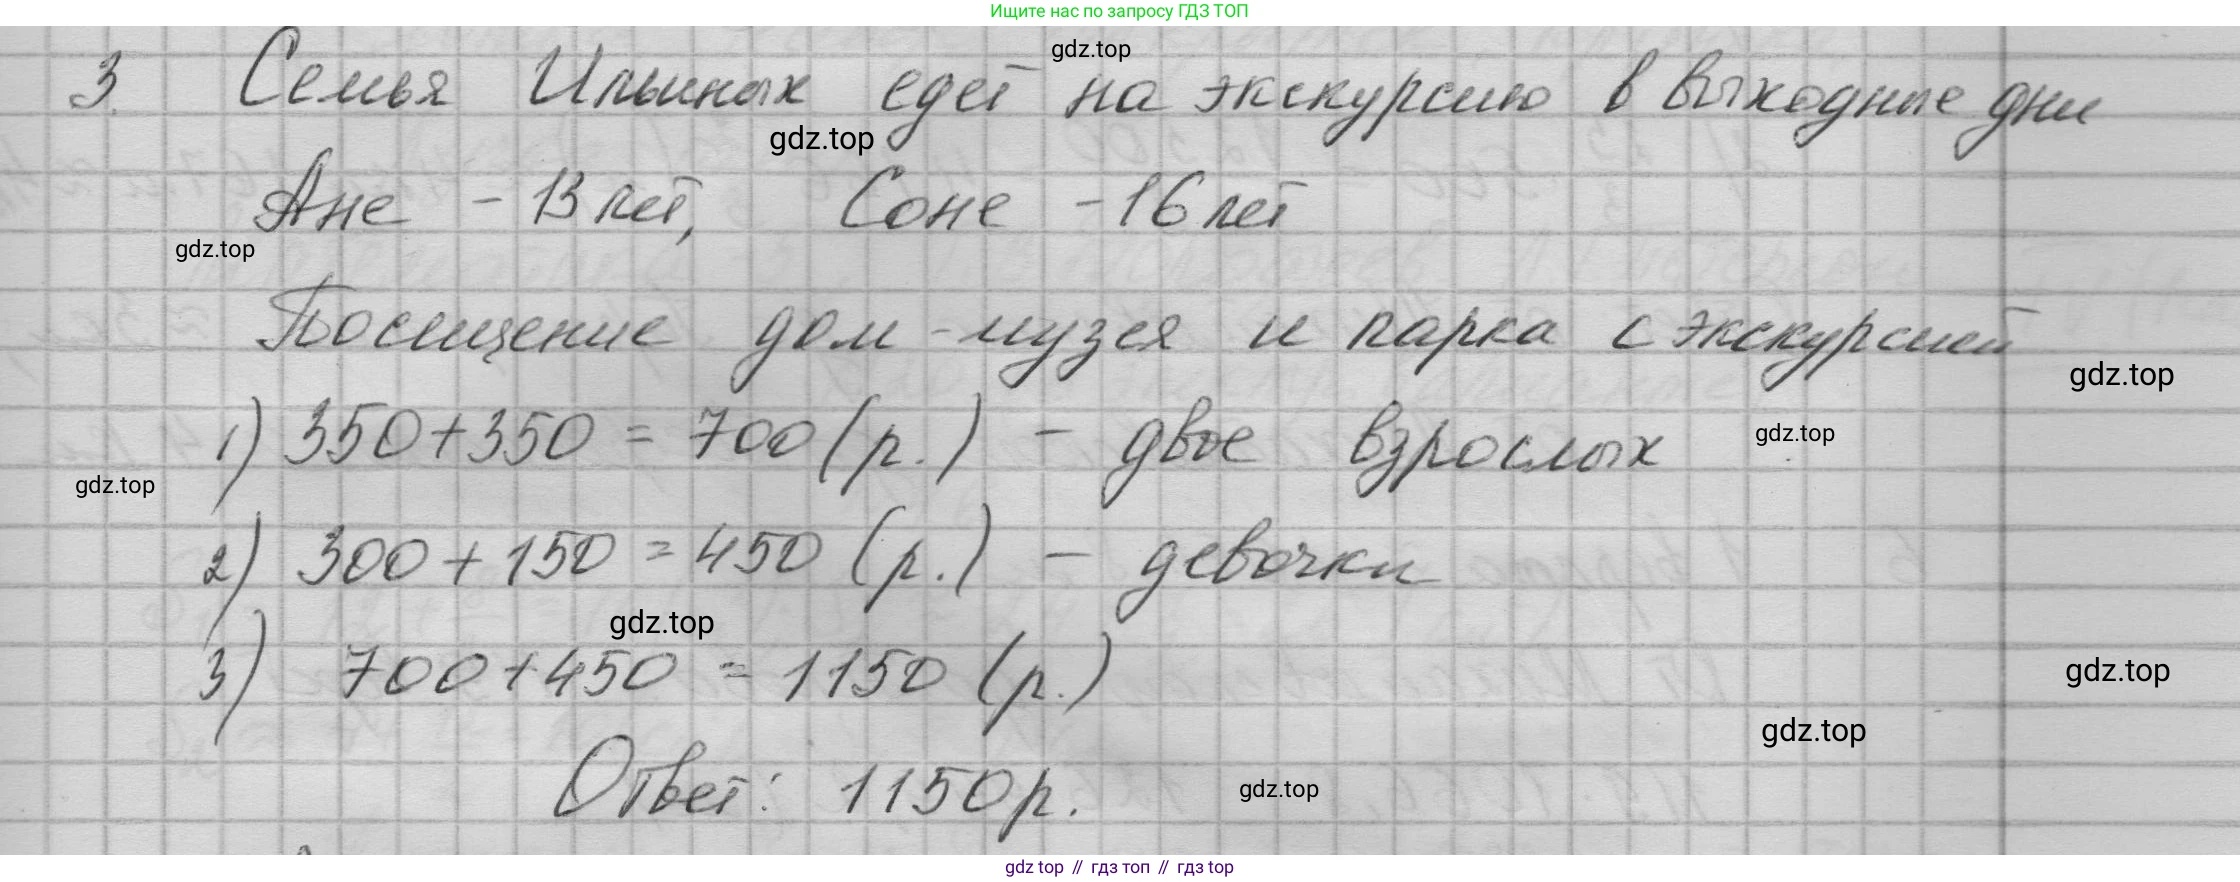 Ищите нас по запросу ГДЗ ТОП
gdz.top
3. Семья Ильиных едет на экскурсию в выходные дни
gdz.top
Ане - 13 лет, Соне - 16 лет
gdz.top
Посещение дом-музея и парка с экскурсией
gdz.top
1) 350+350 = 700 (р.) - двое взрослых
gdz.top
gdz.top
2) 300 + 150 = 450 (р.) - девочки
gdz.top
3) 700+450 = 1150 (р.)
gdz.top
gdz.top
Ответ: 1150 р.
gdz.top
gdz top // гдз топ // гдз top